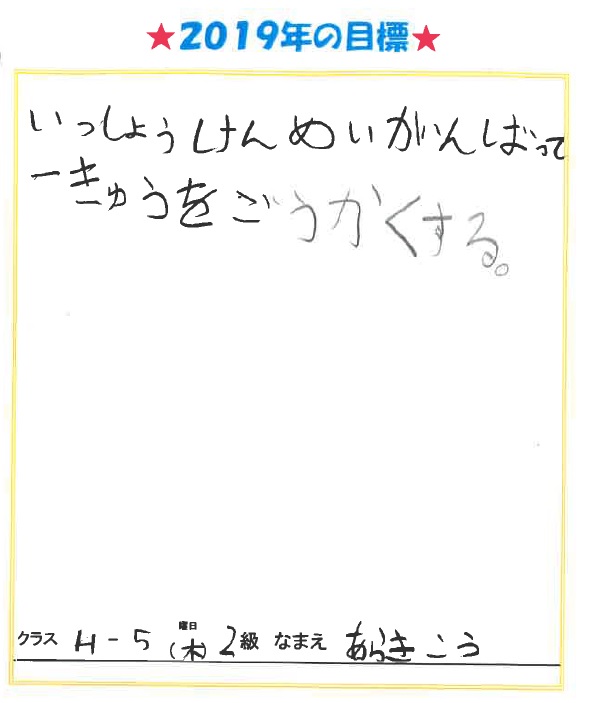 ★2019年の目標★
いっしょうけんめいがんばって
一きゅうをごうかくする。
曜日
クラス H-5 (木) 2級 なまえ あらき こう